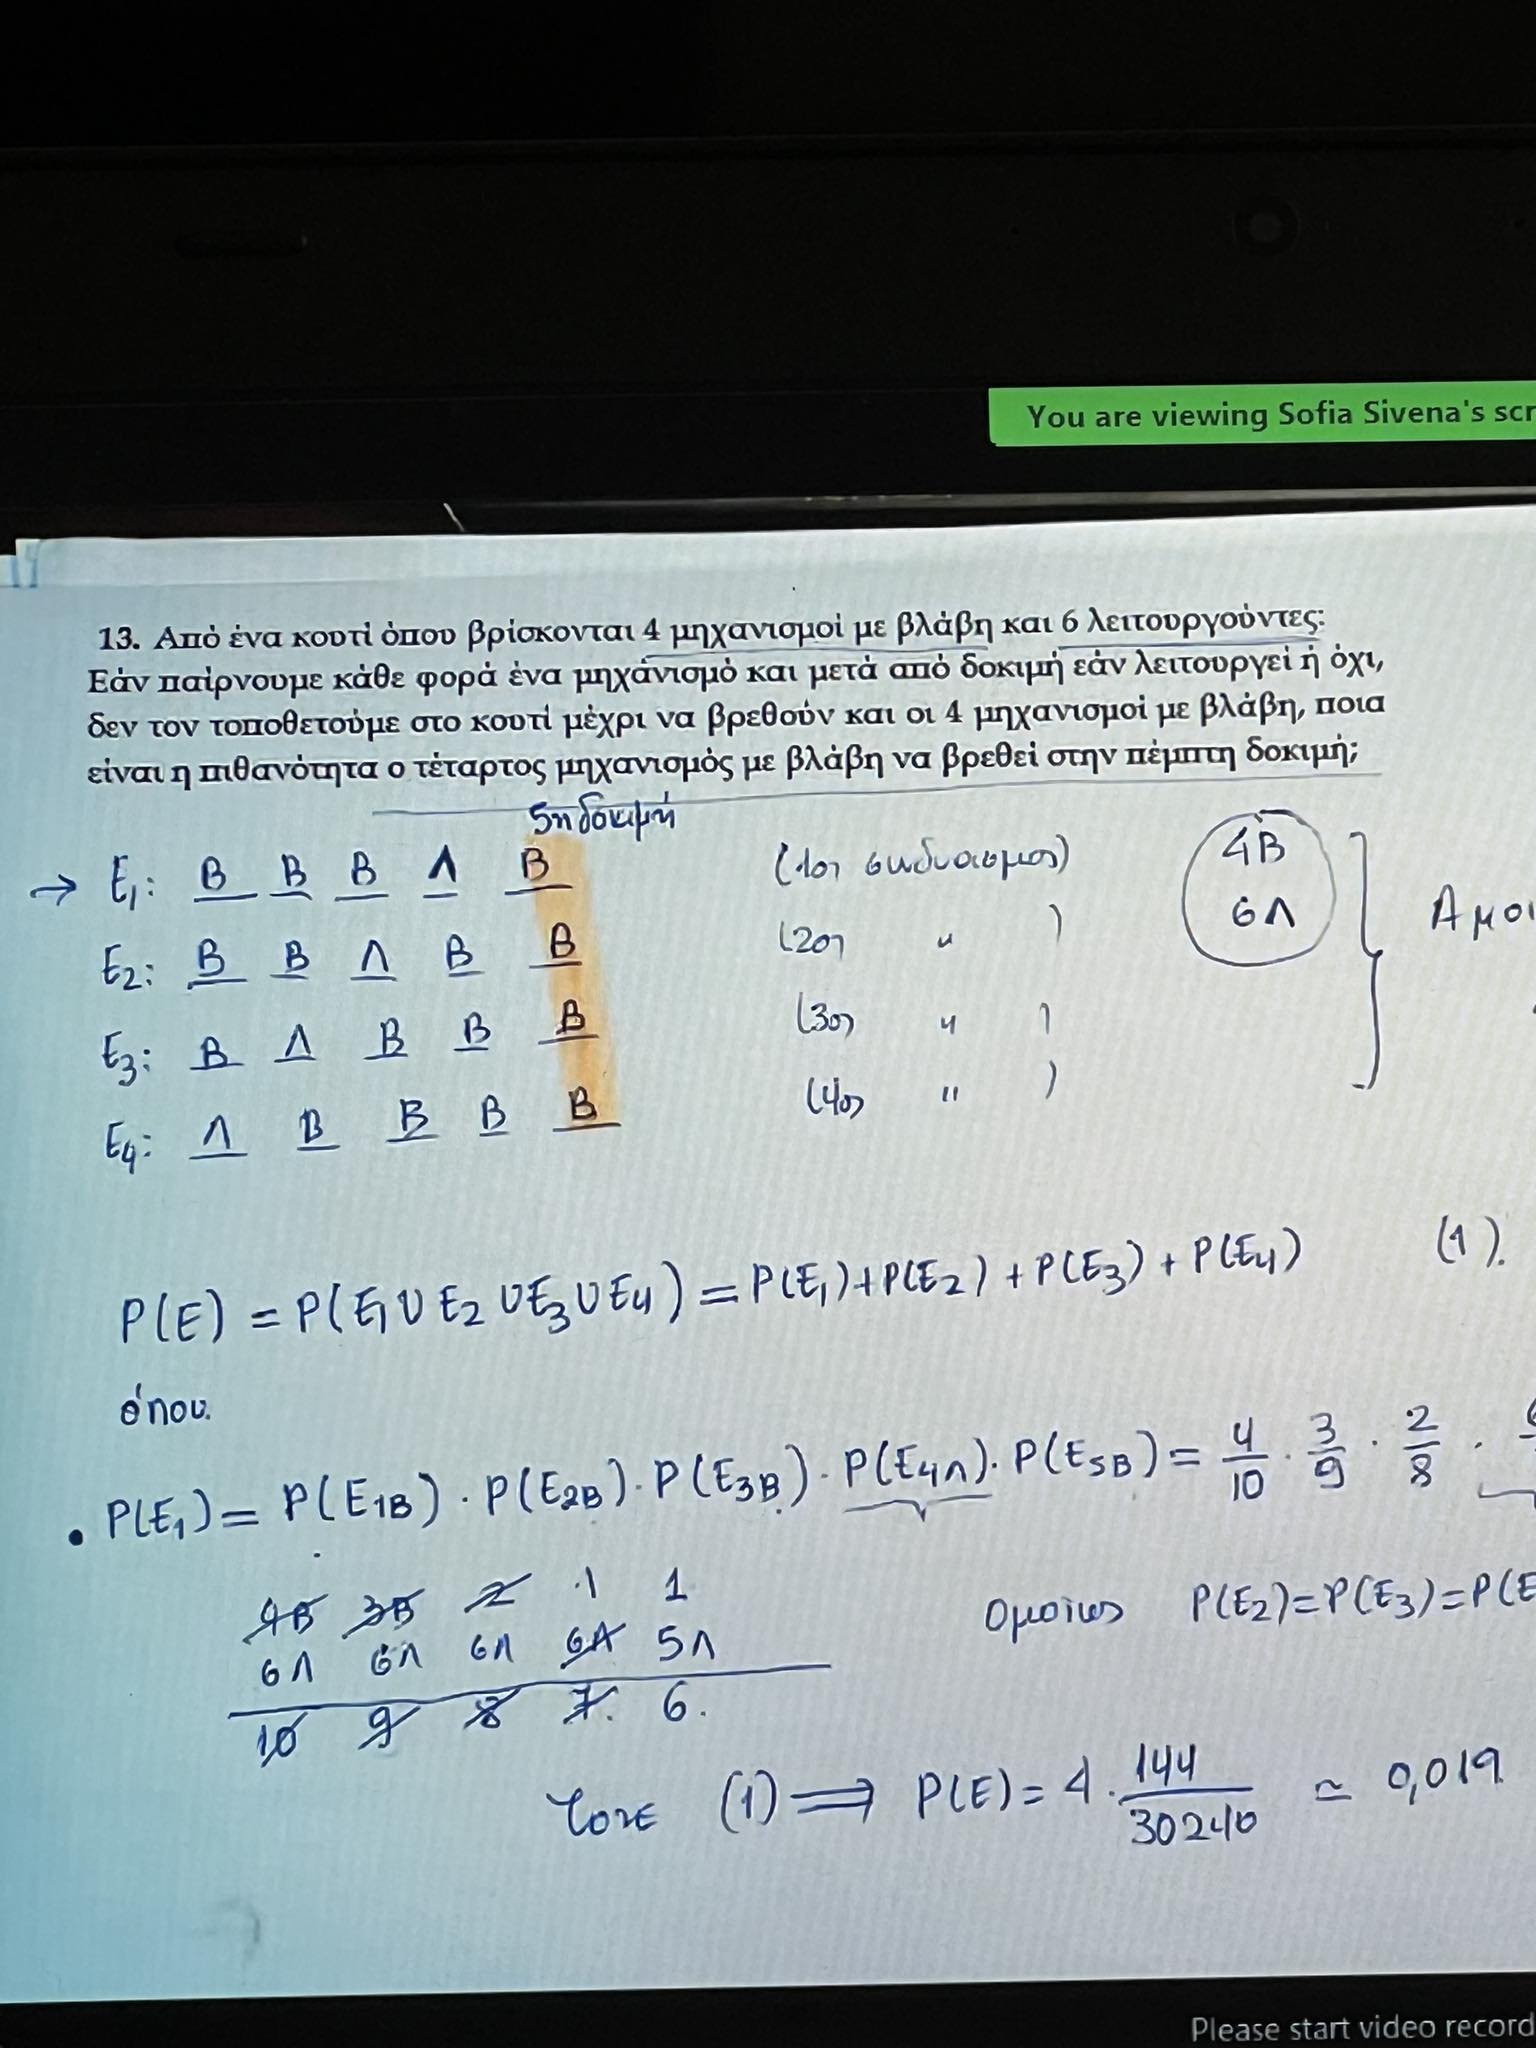 You are viewing Sofia Sivena's scr
13. Από ένα κουτί όπου βρίσκονται 4 μηχανισμοί με βλάβη και 6 λειτουργούντες:
Εάν παίρνουμε κάθε φορά ένα μηχάνισμό και μετά από δοκιμή εάν λειτουργεί ή όχι,
δεν τον τοποθετούμε στο κουτί μέχρι να βρεθούν και οι 4 μηχανισμοί με βλάβη, ποια
είναι η πιθανότητα ο τέταρτος μηχανισμός με βλάβη να βρεθεί στην πέμπτη δοκιμή;
5η δοκιμή
→ E₁: B B B Λ B (1ος συνδυασμος) 4B
6Λ
Αμοι
E₂: B B Λ B B (2ος " )
E₃: B Λ B B B (3ος " )
E₄: Λ B B B B (4ος " )
P(E) = P(E₁ ∪ E₂ ∪ E₃ ∪ E₄) = P(E₁) + P(E₂) + P(E₃) + P(E₄) (1).
όπου.
• P(E₁) = P(E₁B) · P(E₂B) · P(E₃B) · P(E₄Λ) · P(E₅B) = 4/10 · 3/9 · 2/8 ·
4B 3B 2 1 1
6Λ 6Λ 6Λ 6Λ 5Λ
10 9 8 7. 6.
Ομοίως P(E₂)=P(E₃)=P(E
Τότε (1) ⟹ P(E) = 4 · 144/30240 ≃ 0,019
Please start video record